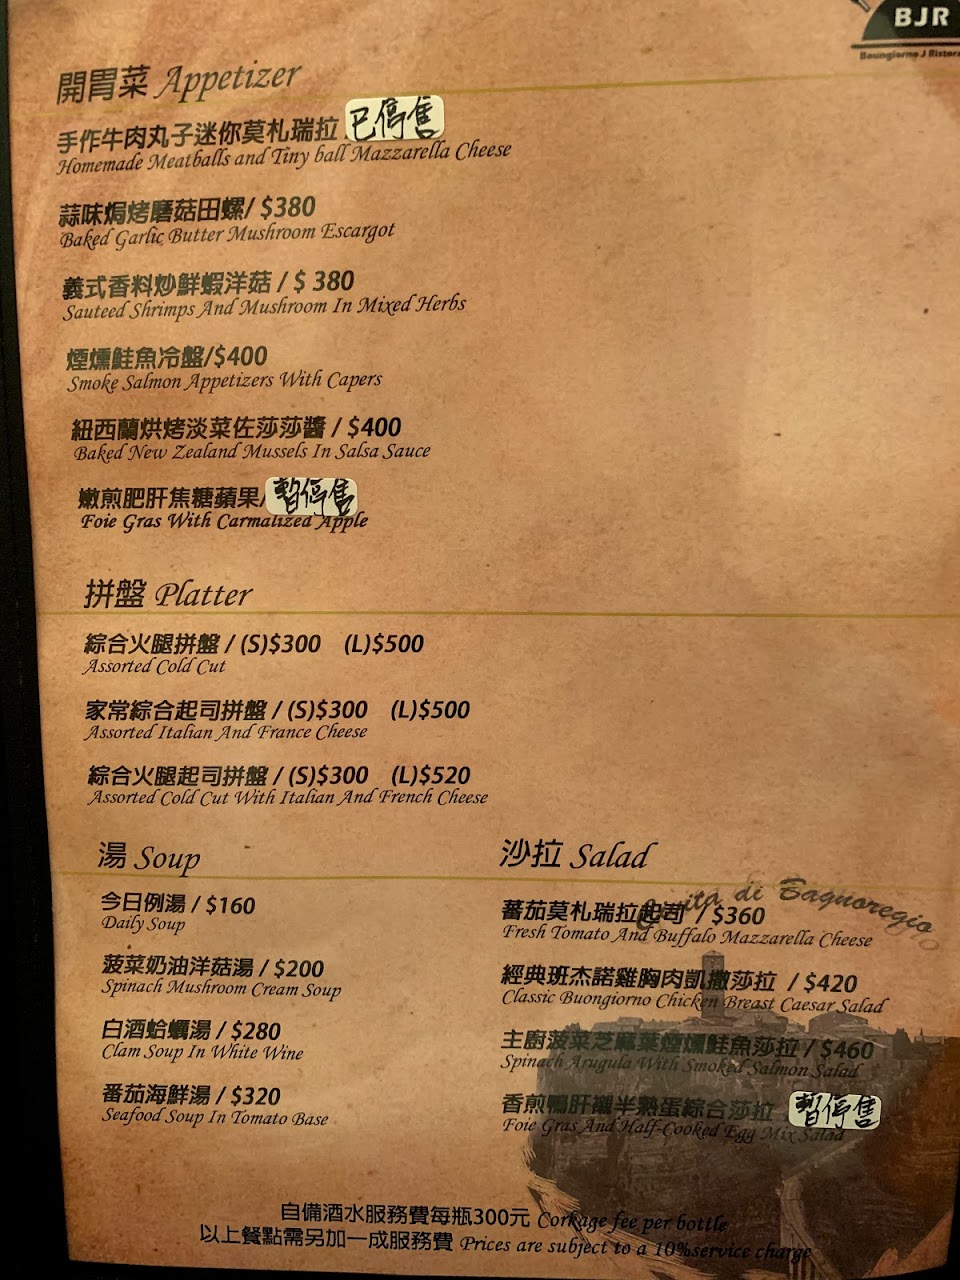 BJR
Buongiorno J Ristora
開胃菜 Appetizer
手作牛肉丸子迷你莫札瑞拉 已停售
Homemade Meatballs and Tiny ball Mazzarella Cheese
蒜味焗烤磨菇田螺/ $380
Baked Garlic Butter Mushroom Escargot
義式香料炒鮮蝦洋菇 / $ 380
Sauteed Shrimps And Mushroom In Mixed Herbs
煙燻鮭魚冷盤/$400
Smoke Salmon Appetizers With Capers
紐西蘭烘烤淡菜佐莎莎醬 / $400
Baked New Zealand Mussels In Salsa Sauce
嫩煎肥肝焦糖蘋果/ 暫停售
Foie Gras With Carmalized Apple
拼盤 Platter
綜合火腿拼盤 / (S)$300 (L)$500
Assorted Cold Cut
家常綜合起司拼盤 / (S)$300 (L)$500
Assorted Italian And France Cheese
綜合火腿起司拼盤 / (S)$300 (L)$520
Assorted Cold Cut With Italian And French Cheese
湯 Soup
今日例湯 / $160
Daily Soup
菠菜奶油洋菇湯 / $200
Spinach Mushroom Cream Soup
白酒蛤蠣湯 / $280
Clam Soup In White Wine
番茄海鮮湯 / $320
Seafood Soup In Tomato Base
沙拉 Salad
di Bagnoregio
蕃茄莫札瑞拉起司 / $360
Fresh Tomato And Buffalo Mazzarella Cheese
經典班杰諾雞胸肉凱撒莎拉 / $420
Classic Buongiorno Chicken Breast Caesar Salad
主廚菠菜芝麻葉煙燻鮭魚莎拉 / $460
Spinach Arugula With Smoked Salmon Salad
香煎鴨肝襯半熟蛋綜合莎拉 暫停售
Foie Gras And Half-Cooked Egg Mix Salad
自備酒水服務費每瓶300元 Corkage fee per bottle
以上餐點需另加一成服務費 Prices are subject to a 10%service charge